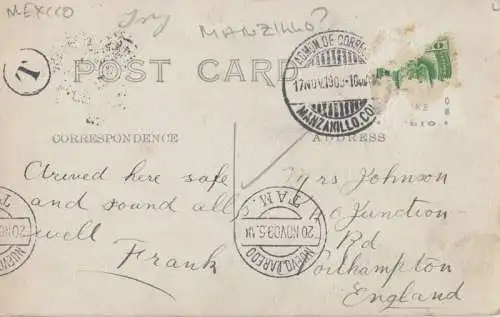 MEXICO
MANZILLO?
T
POST CARD
ADMON DE CORREOS
17 NOV 1909-10
MANZANILLO. COL
CORRESPONDENCE
ADDRESS
Arived here safe
and sound all
well
Frank
Mrs Johnson
40 Junction
Rd
Northampton
England
NUEVO LAREDO
20 NOV 09
TAM.
20 NOV 09
NUEVO